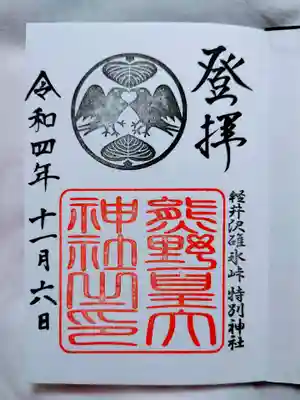 登拝
軽井沢碓氷峠 特別神社
熊野皇大
神社之印
令和四年 十一月六日